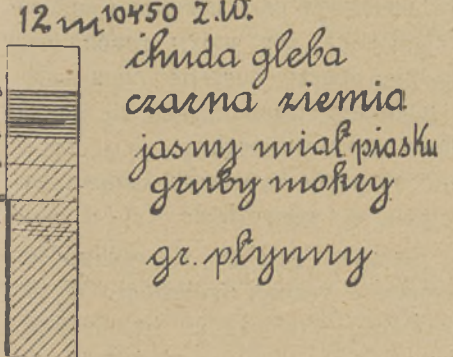 12 m 10450 Z.W.
chuda gleba
czarna ziemia
jasny miał piasku
gruby mokry
gr. płynny